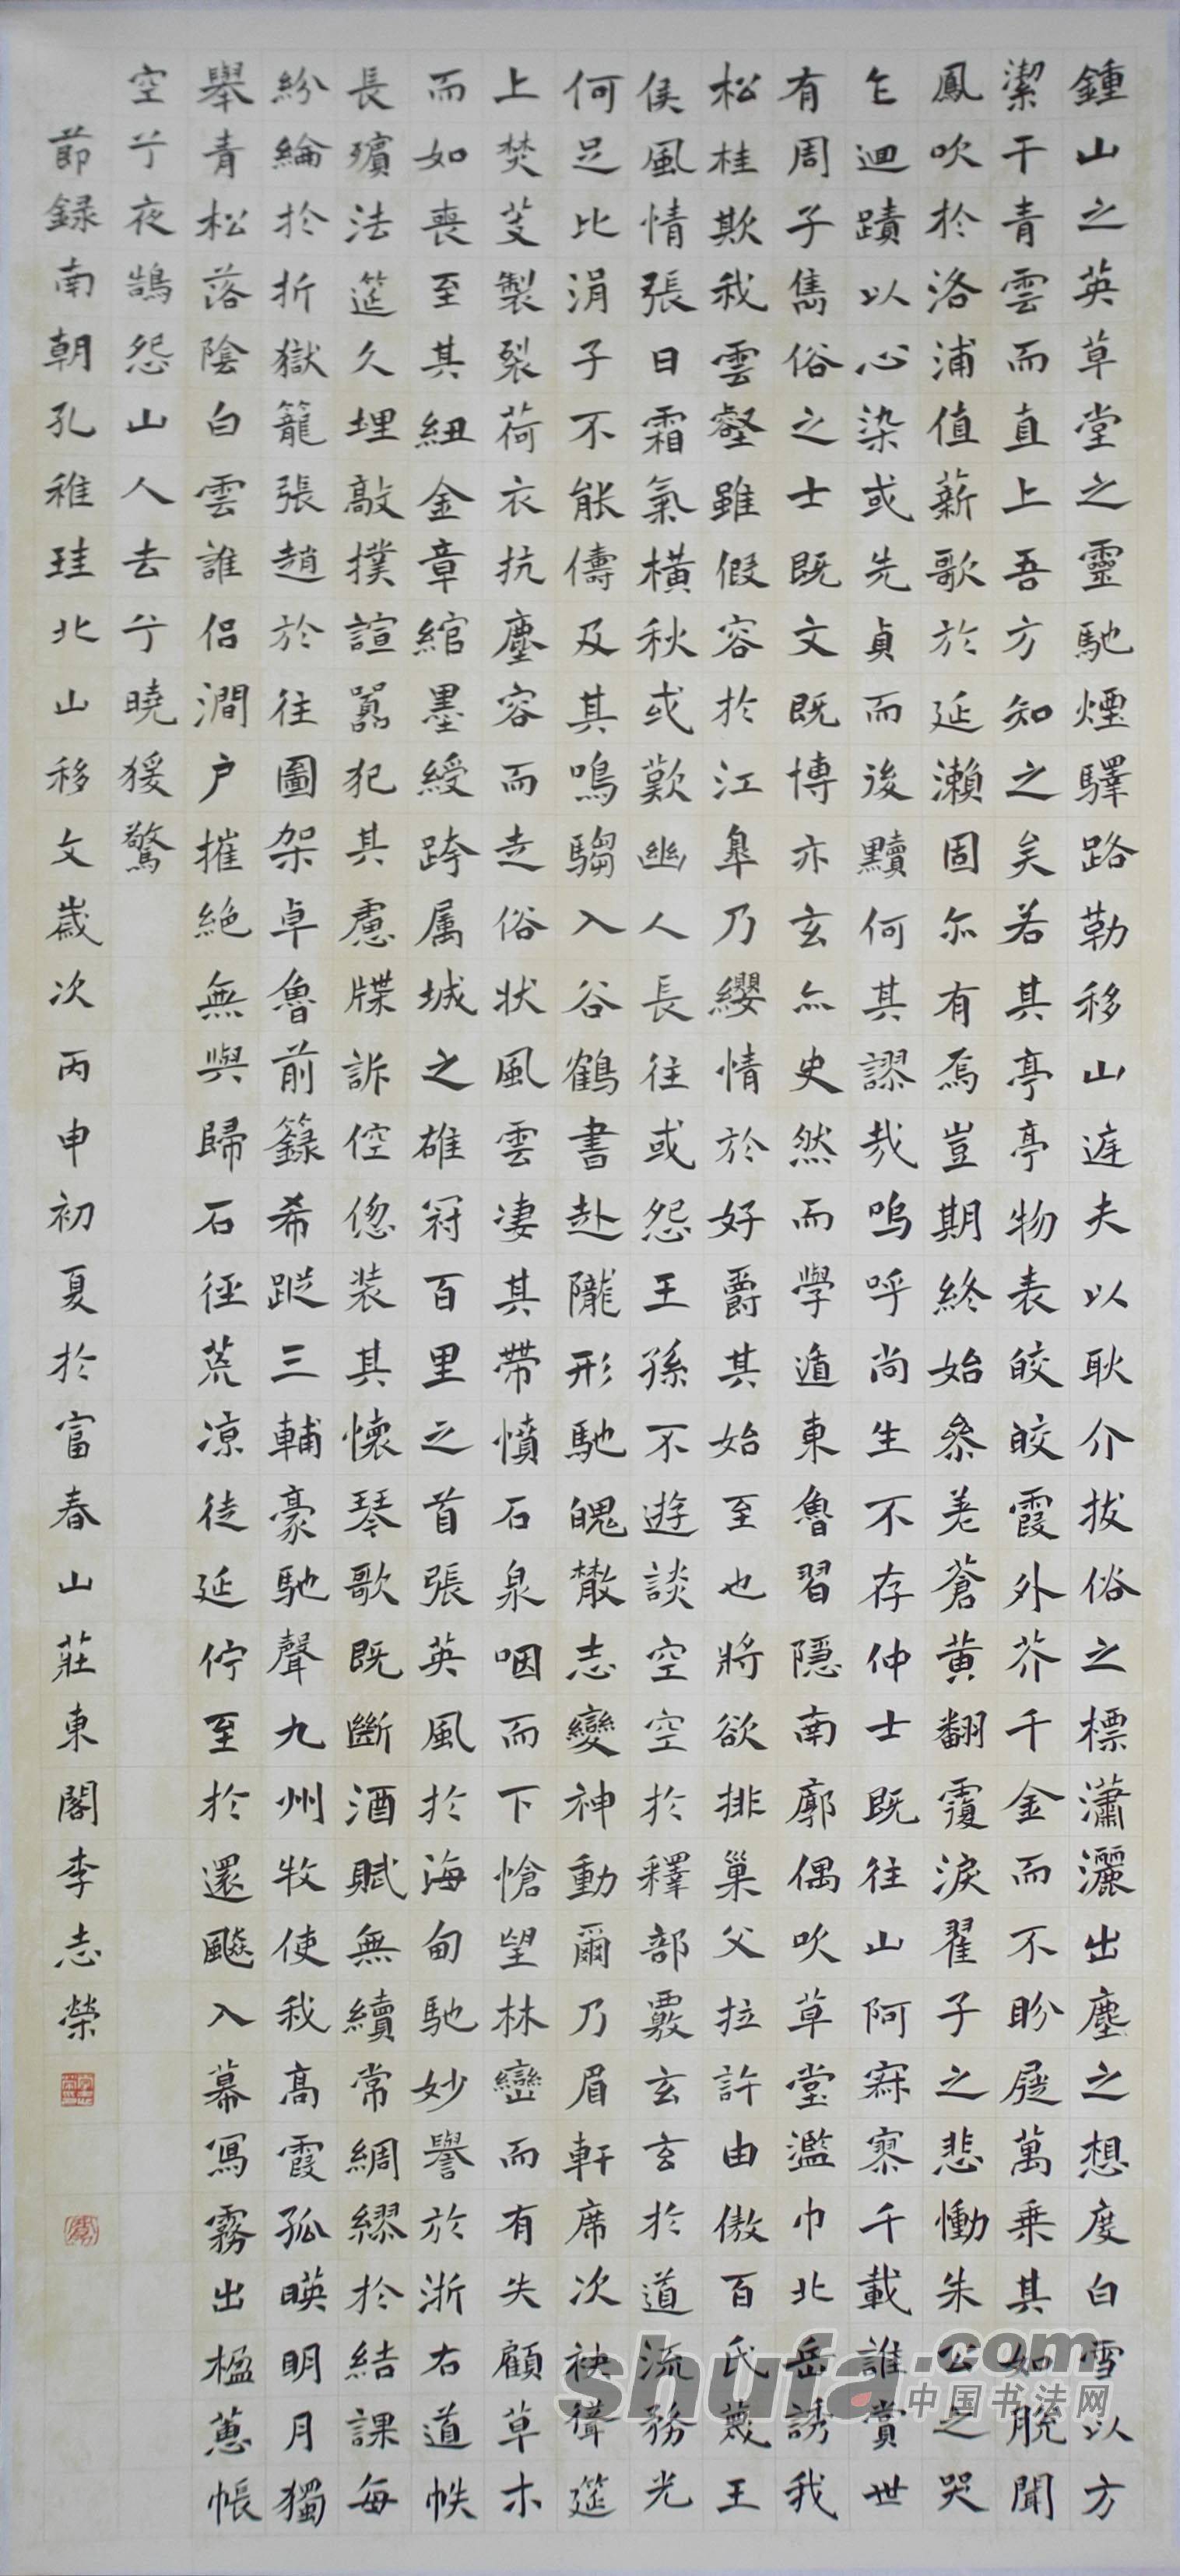 鍾山之英草堂之靈馳煙驛路勒移山庭夫以耿介拔俗之標瀟灑出塵之想度白雪以方
潔干青雲而直上吾方知之矣若其亭亭物表皎皎霞外芥千金而不盼屣萬乗其如脫聞
鳳吹於洛浦值薪歌於延瀨固尔有焉豈期終始叅差蒼黃翻覆淚翟子之悲慟朱公之哭
乍迴蹟以心染或先貞而後黷何其謬哉嗚呼尚生不存仲士既往山阿寂寥千載誰賞世
有周子雋俗之士既文既博亦玄亦史然而學遁東魯習隱南廓偶吹草堂濫巾北岳誘我
松桂欺我雲壑雖假容於江皐乃纓情於好爵其始至也將欲排巢父拉許由傲百氏蔑王
侯風情張日霜氣橫秋或歎幽人長往或怨王孫不遊談空空於釋部覈玄玄於道流務光
何足比涓子不能儔及其鳴騶入谷鶴書赴隴形馳魄散志變神動爾乃眉軒席次袂聳筵
上焚芰製裂荷衣抗塵容而走俗狀風雲凄其帶憤石泉咽而下愴望林巒而有失顧草木
而如喪至其紐金章綰墨綬跨属城之雄冠百里之首張英風於海甸馳妙譽於浙右道帙
長殯法筵久埋敲撲諠囂犯其慮牒訴倥偬装其懷琴歌既斷酒賦無續常綢繆於結課每
紛綸於折獄籠張趙於往圖架卓魯前籙希蹤三輔豪馳聲九州牧使我高霞孤暎明月獨
舉青松落陰白雲誰侶澗户摧絕無與歸石徑荒凉徒延佇至於還飈入幕寫霧出楹蕙帳
空兮夜鵠怨山人去兮曉猨驚
節録南朝孔稚珪北山移文歲次丙申初夏於富春山莊東閣李志榮
shufa.com
中国书法网